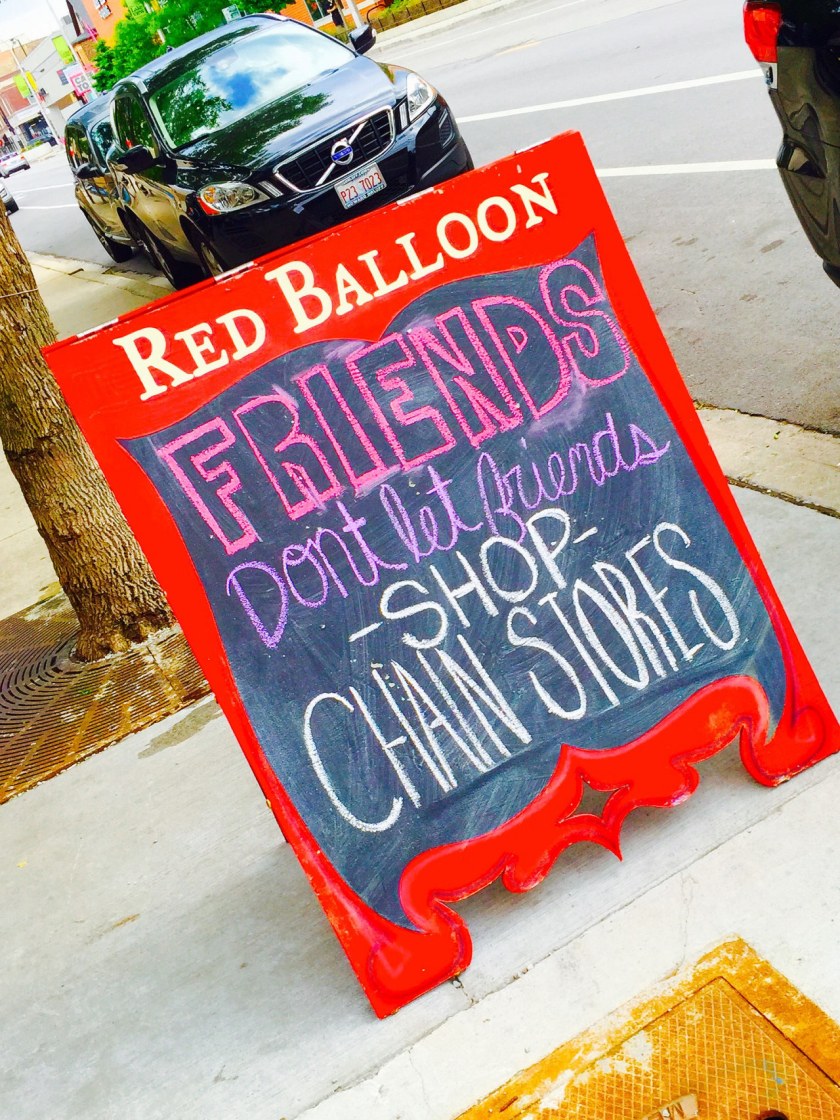 RED BALLOON
FRIENDS
Dont let friends
-SHOP-
CHAIN STORES
P23 7023